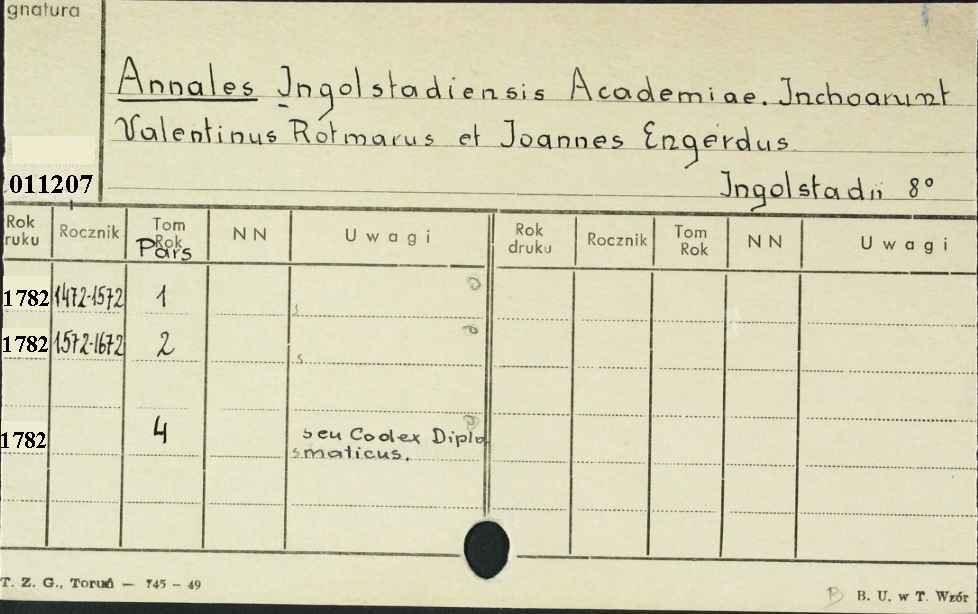 gnatura
Annales Ingolstadiensis Academiae. Inchoarunt
Valentinus Rotmarus et Joannes Engerdus
011207
Ingolstadii 8°
Rok ruku Rocznik Tom Rok NN Uwagi Rok druku Rocznik Tom Rok NN Uwagi
Pars
1782 1472-1572 1
s
1782 1572-1672 2
s
1782 4 seu Codex Diplo
smaticus.
T. Z. G., Toruń — 745 - 49
B. U. w T. Wzór